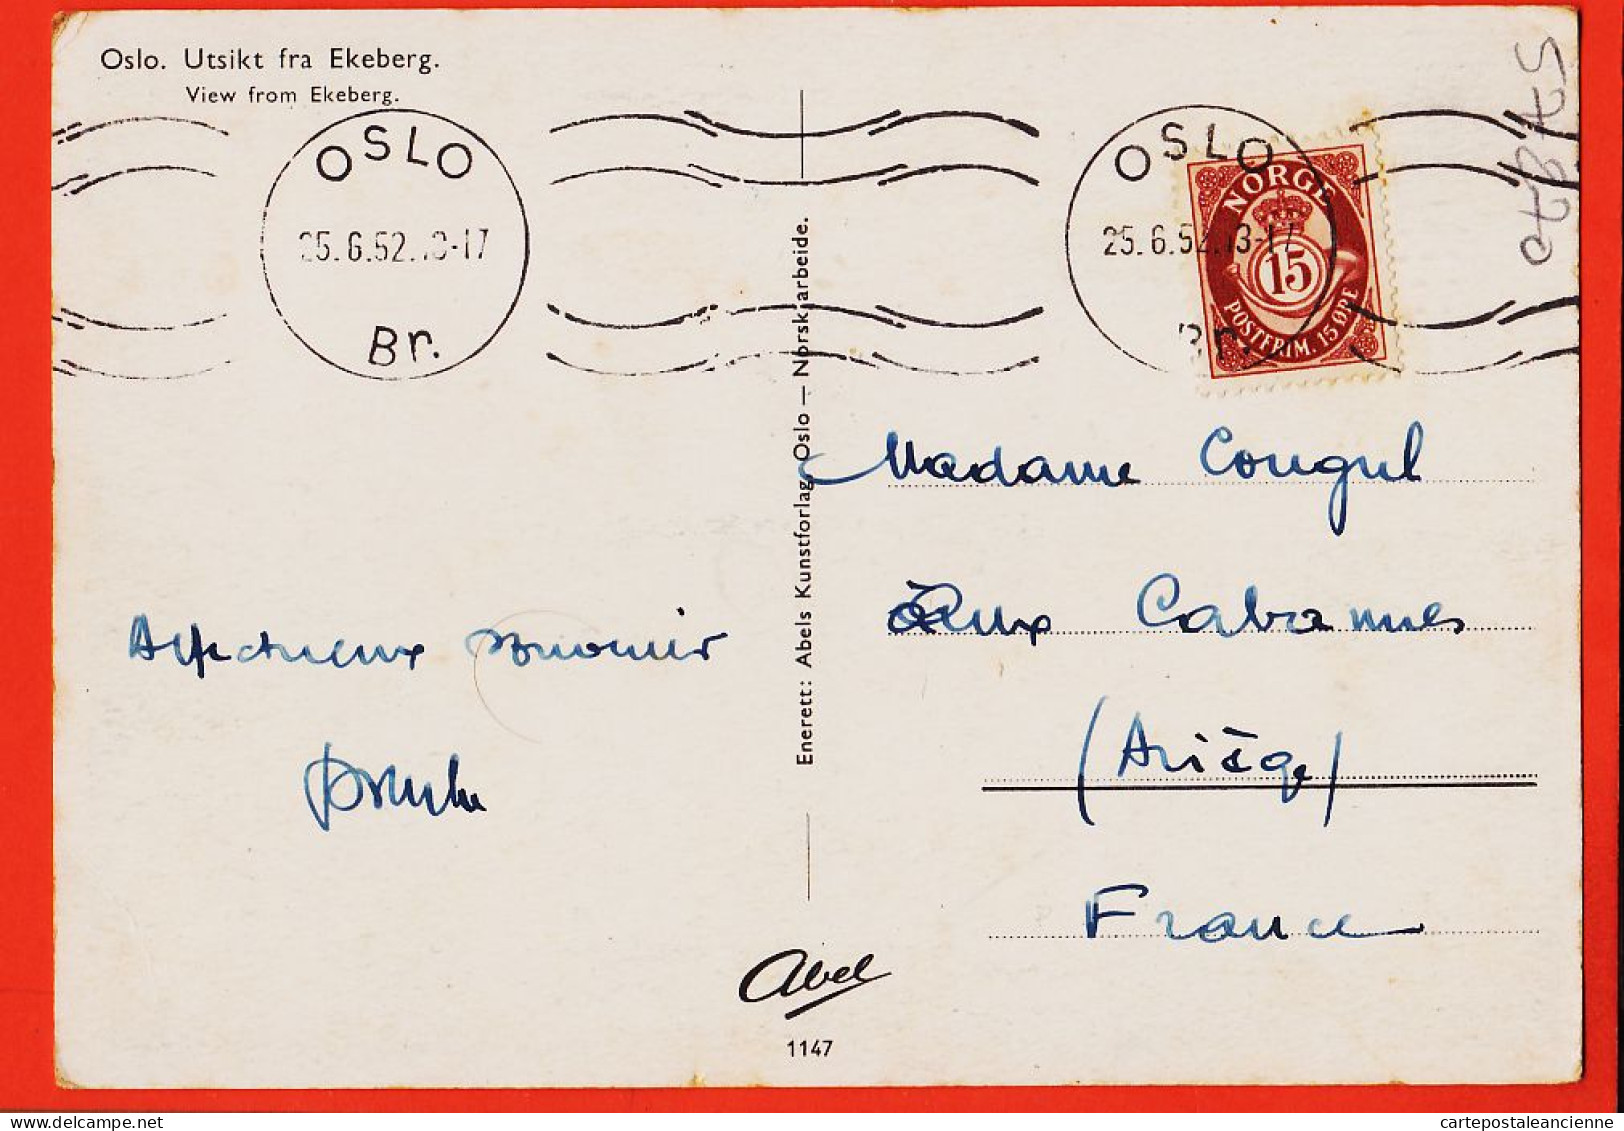 Oslo. Utsikt fra Ekeberg.
View from Ekeberg.
OSLO
25.6.52.13-17
Br.
OSLO
25.6.52.13-17
Br.
NORGE
15
POSTFRIM. 15 ØRE
57870
Enerett: Abels Kunstforlag, Oslo — Norsk arbeide.
Affectueux souvenir
Madame Cougul
Aux Cabannes
(Ariège)
France
Abel
1147
cartepostaleancienne